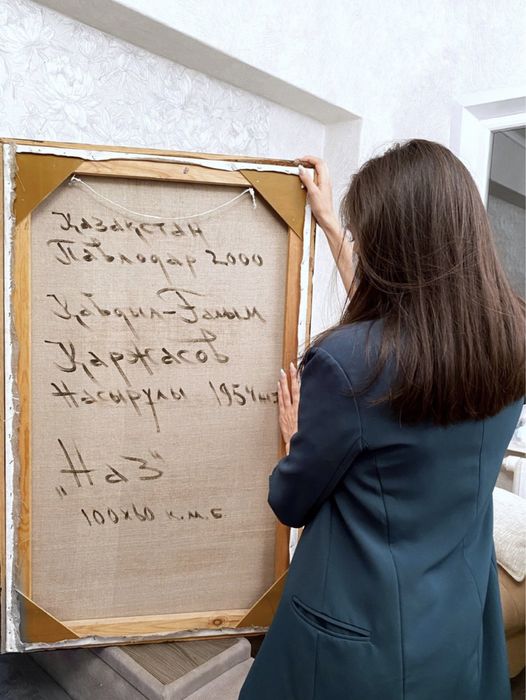 Қазақстан
Павлодар 2000
Қабдыл-Ғалым
Қаржасов
Насырұлы 1954
„Наз"
100х60 к.м.б